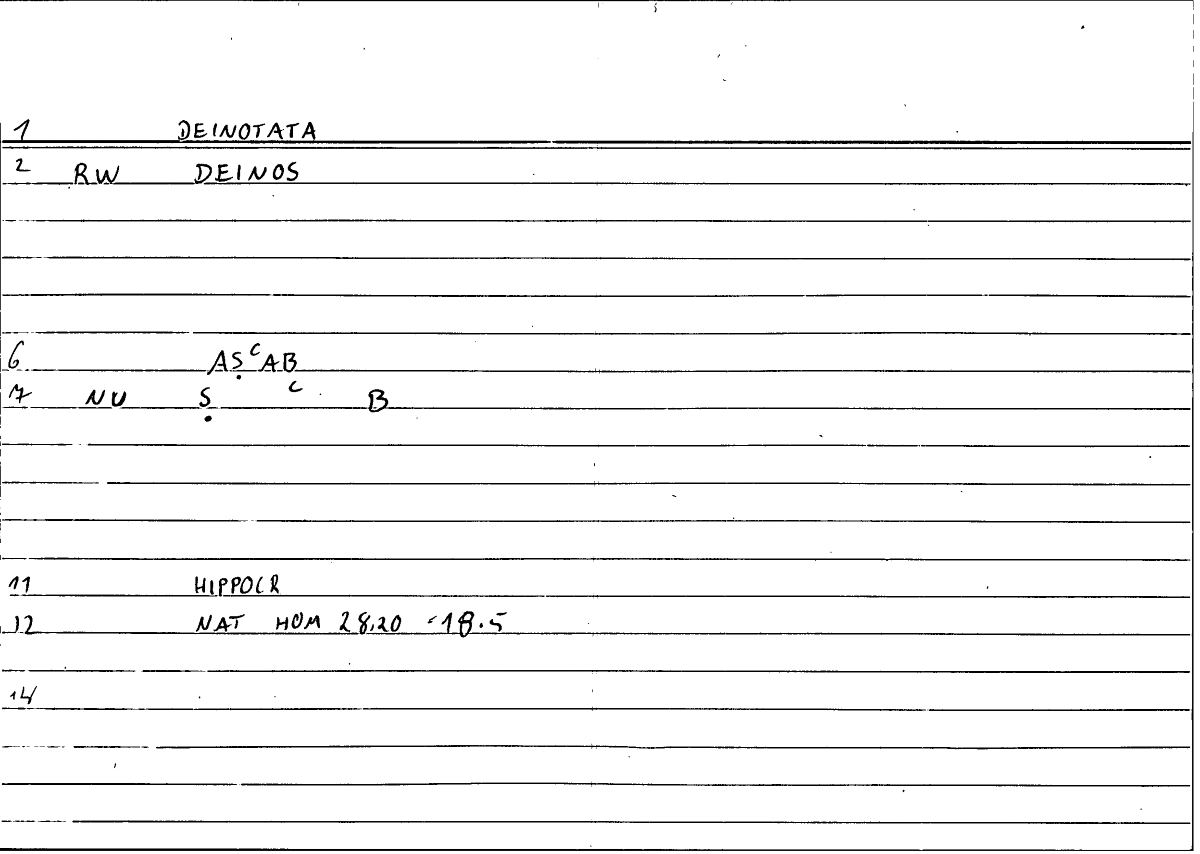 1 DEINOTATA
2 RW DEINOS
6 AṢᶜAB
7 NU Ṣ ᶜ B
11 HIPPOCR
12 NAT HOM 28.20 -18.5
14